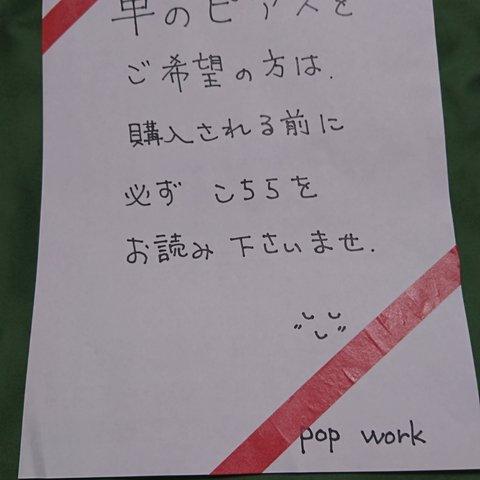 のピアスを
ご希望の方は.
購入される前に
必ず こちらを
お読み下さいませ.
pop work